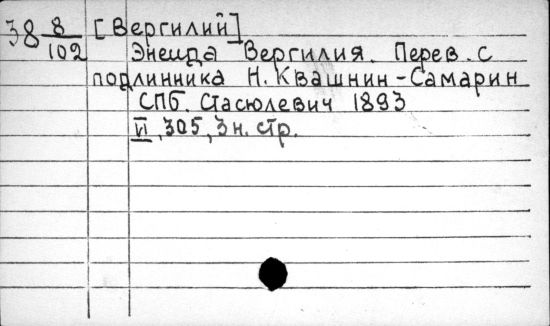 38 8/102 [Вергилий]
Энеида Вергилия. Перев. с
подлинника Н. Квашнин-Самарин
СПб. Стасюлевич 1893
VI, 305, 3 н. стр.